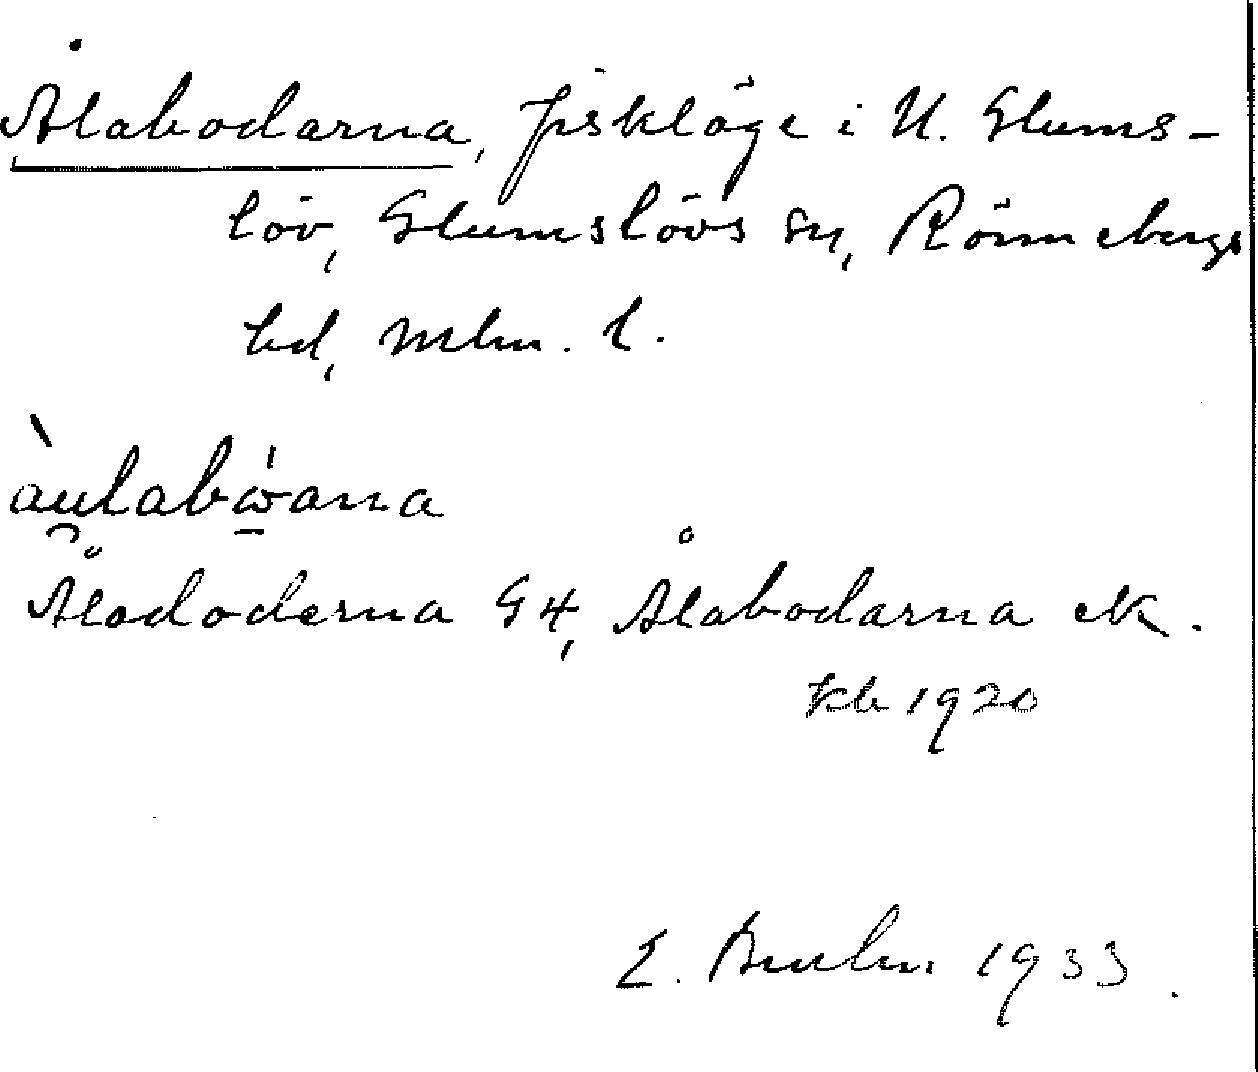 Ålabodarna, fiskläge i N. Glums-
löv, Glumslövs sn, Rönnebergs
hd, Mlm. l.
àulabẁana
Ålabodarna G4, Ålabodarna ek.
kb 1920
E. 1933.